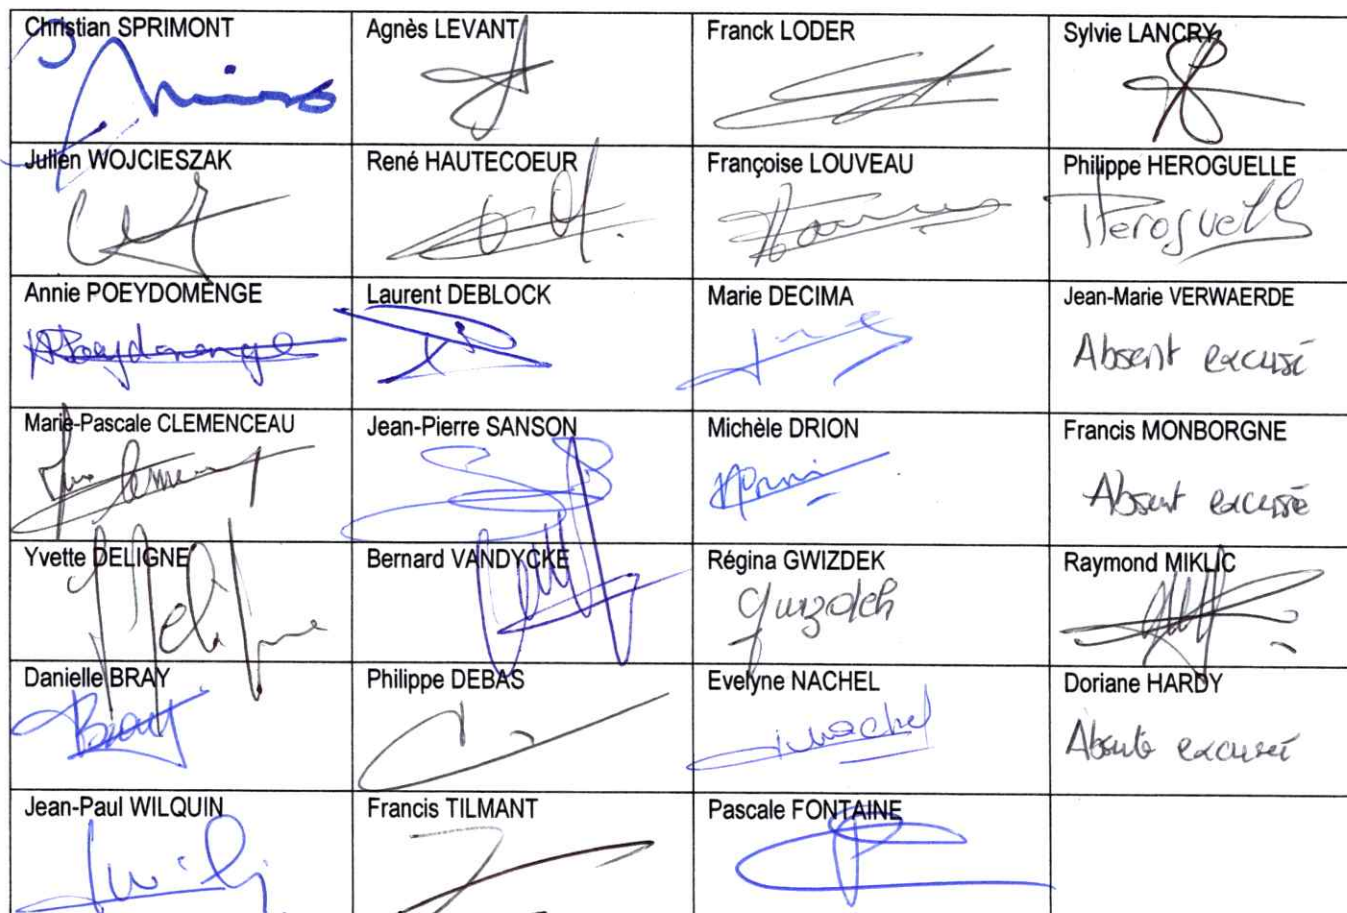 Christian SPRIMONT
Agnès LEVANT
Franck LODER
Sylvie LANCRY
Julien WOJCIESZAK
René HAUTECOEUR
Françoise LOUVEAU
Philippe HEROGUELLE
Heroguelle
Annie POEYDOMENGE
Laurent DEBLOCK
Marie DECIMA
Jean-Marie VERWAERDE
APoeydomenge
Absent excusé
Marie-Pascale CLEMENCEAU
Jean-Pierre SANSON
Michèle DRION
Francis MONBORGNE
Absent excusé
Yvette DELIGNE
Bernard VANDYCKE
Régina GWIZDEK
Raymond MIKLIC
Gwizdek
Danielle BRAY
Philippe DEBAS
Evelyne NACHEL
Doriane HARDY
Bray
Nachel
Absente excusée
Jean-Paul WILQUIN
Francis TILMANT
Pascale FONTAINE